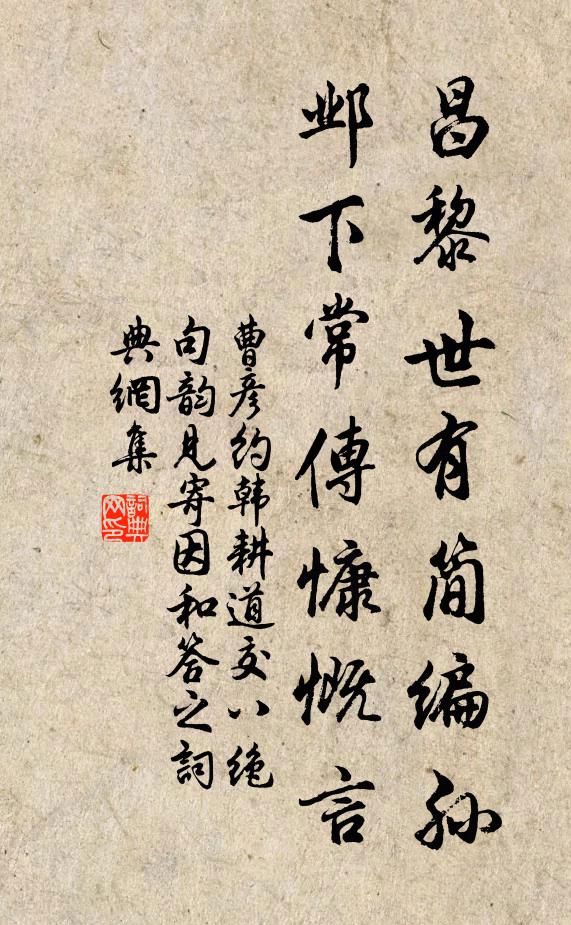 昌黎世有简编孙
邺下常傳慷慨言
曹彦约韩耕道交八绝
句韵见寄因和答之詞
典網集
詞典
网印